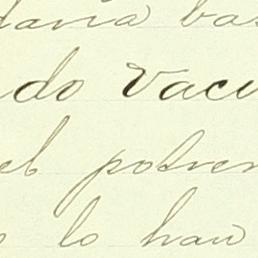 daria bas
do vacu
el potrer
lo han